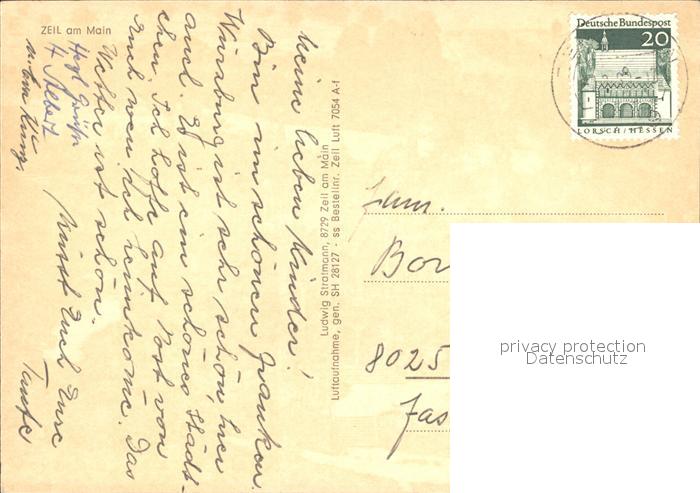 ZEIL am Main
Meine lieben Kinder!
Bin im schönen Franken.
Würzburg ist sehr schön, hier
auch. Es ist ein schönes Städt-
chen. Ich hoffe auf Post von
Euch wenn ich heimkome. Das
Wetter ist schön.
Herzl. Grüße
Albert
Küsst Euch Eure
Tante
Ludwig Stratmann, 8729 Zeil am Main
Luftaufnahme, gen. SH 28127 - ss Bestellnr. Zeil Luft 7054 A-f
Deutsche Bundespost
20
LORSCH/HESSEN
Fam.
Bor
8025
privacy protection
Datenschutz